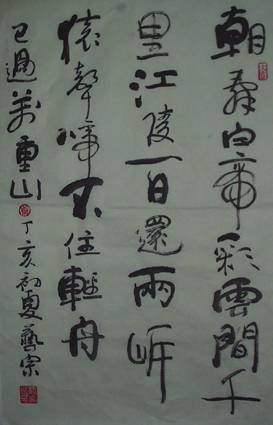 朝辞白帝彩雲間千
里江陵一日還兩岍
猿聲啼不住輕舟
已過萬重山
丁亥初夏藝宗